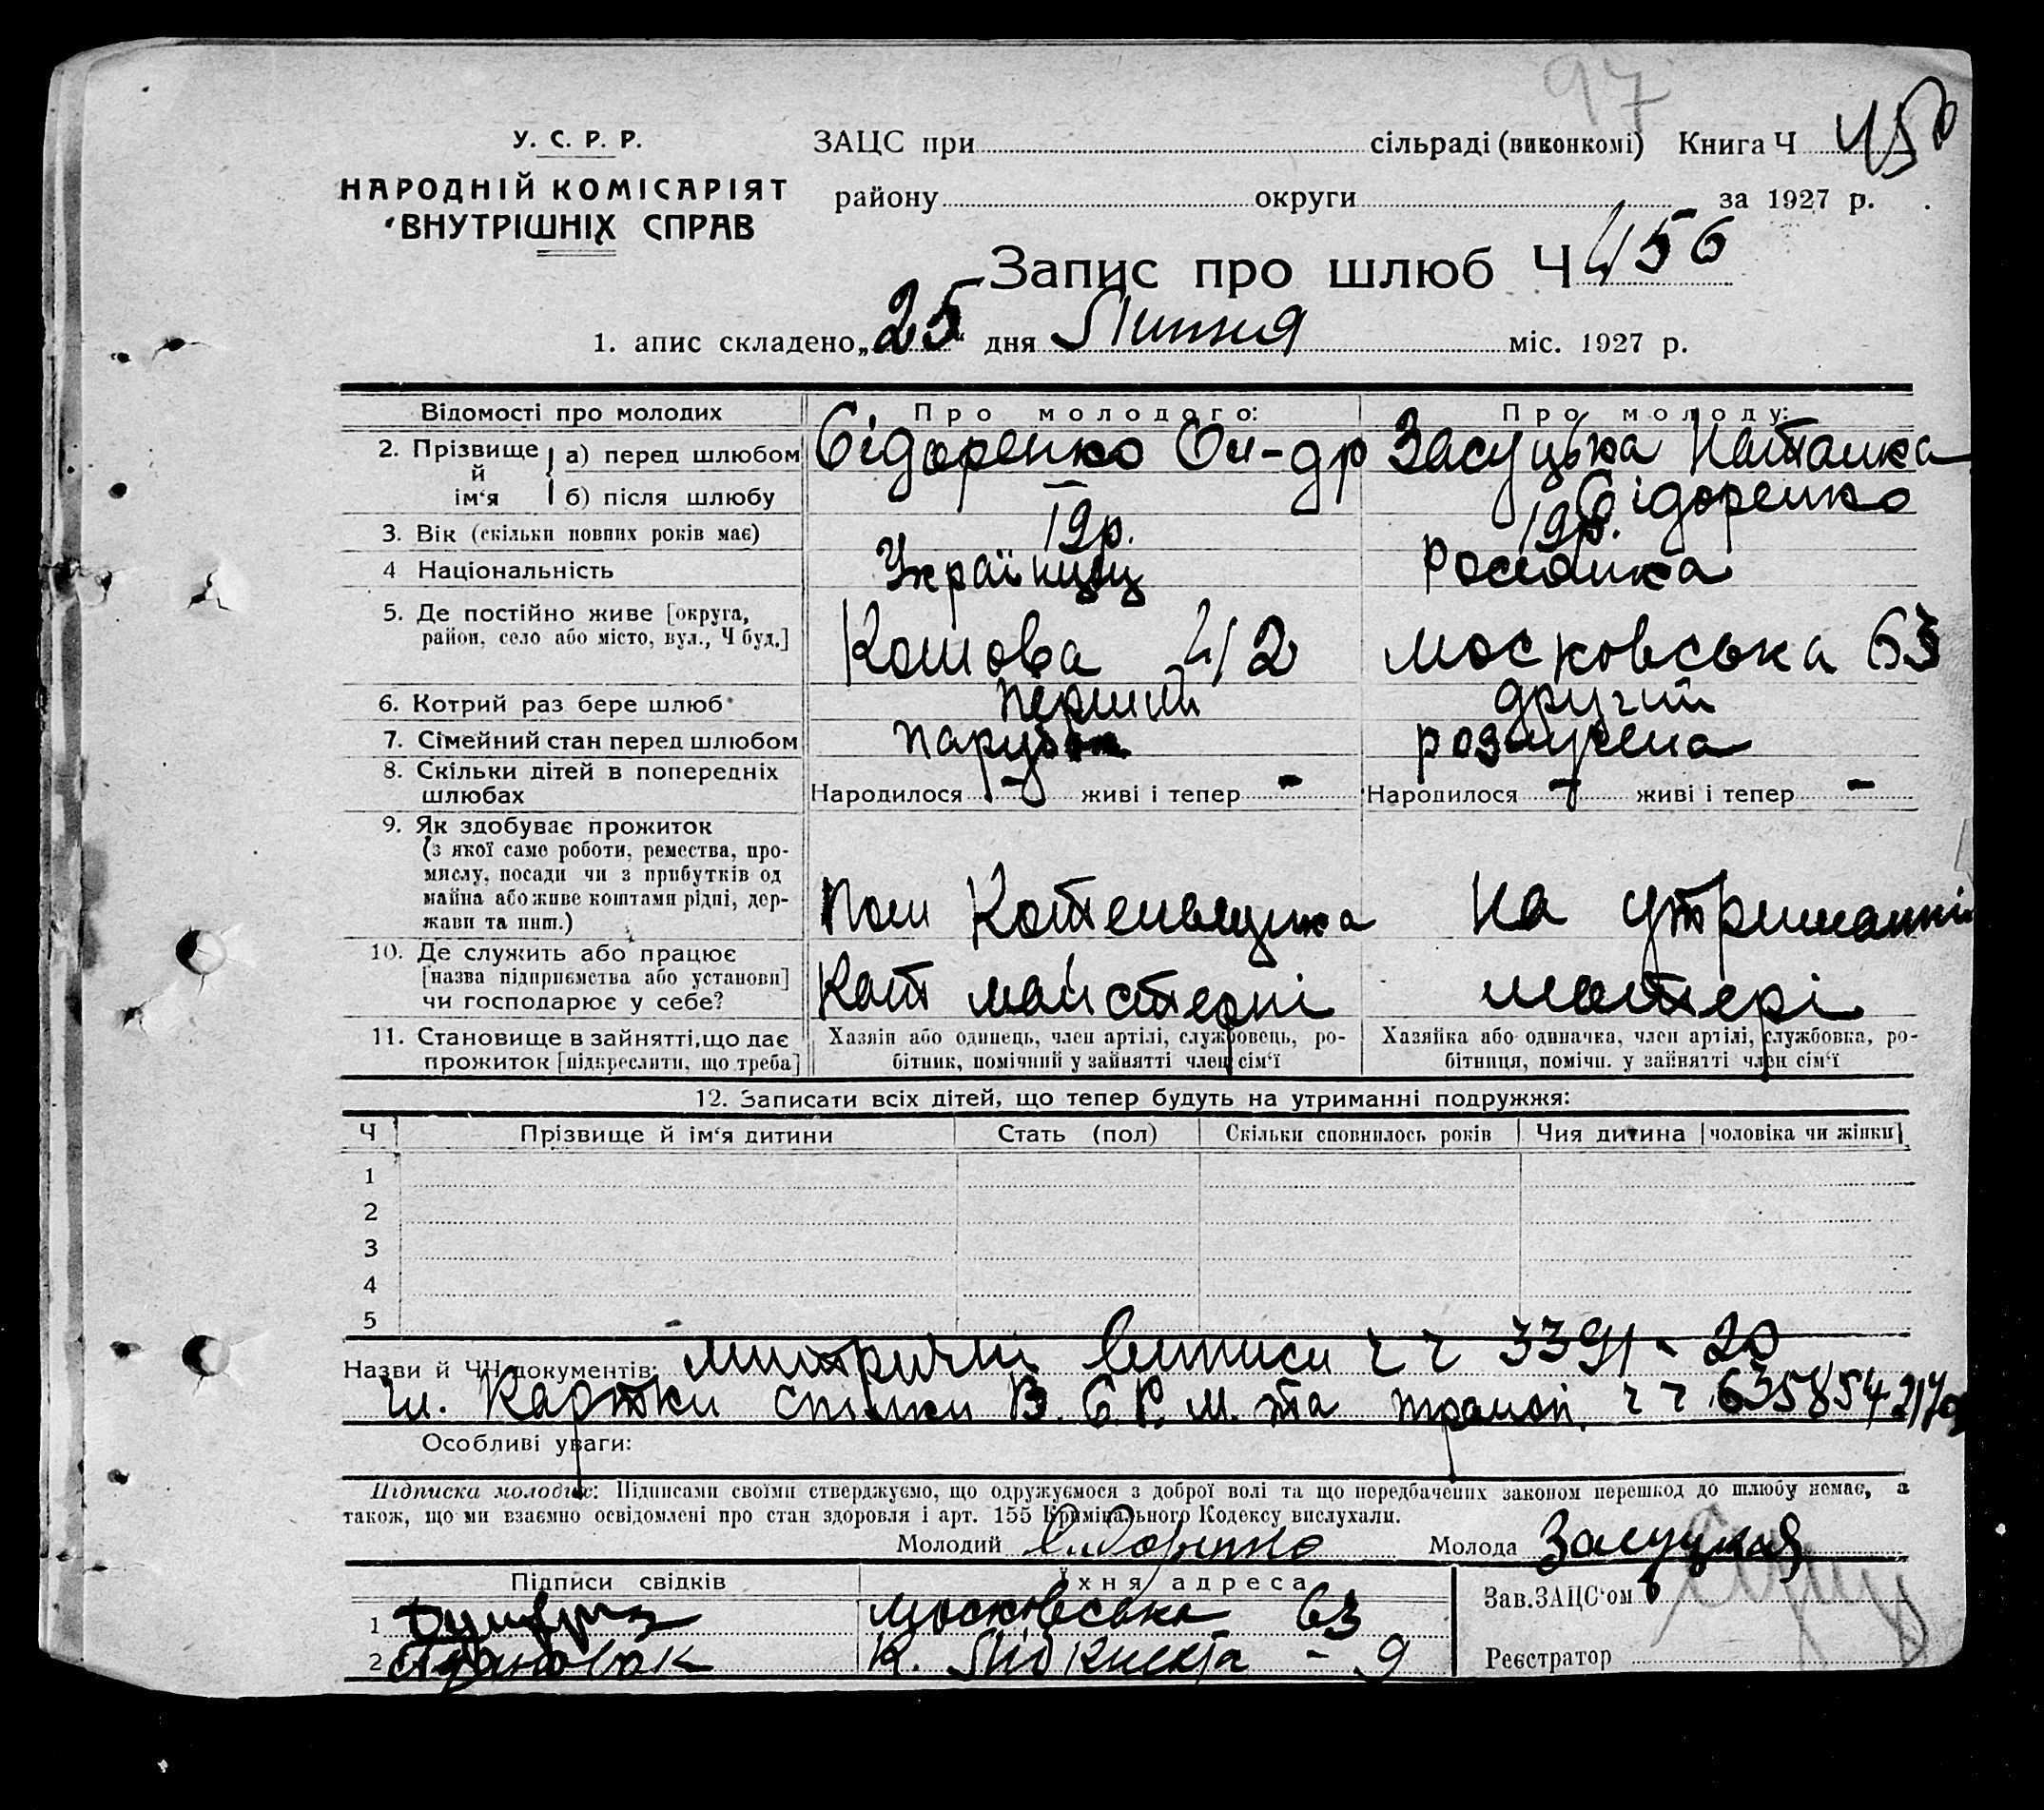 97
У. С. Р. Р.
НАРОДНІЙ КОМІСАРІЯТ
ВНУТРІШНІХ СПРАВ
ЗАЦС при сільраді (виконкомі) Книга Ч
району округи за 1927 р.
Запис про шлюб Ч 456
1. апис складено „25" дня Липня міс. 1927 р.
Відомості про молодих Про молодого: Про молоду:
2. Прізвище й ім'я а) перед шлюбом Сідоренко Ол-др Засуцька Наталка
б) після шлюбу — Сідоренко
3. Вік (скільки повних років має) 19р. 19р.
4 Національність Українець Росіянка
5. Де постійно живе [округа, район, село або місто, вул., Ч буд.] Кошова 42 московська 63
6. Котрий раз бере шлюб перший другий
7. Сімейний стан перед шлюбом парубок розлучена
8. Скільки дітей в попередніх шлюбах Народилося - живі і тепер - Народилося - живі і тепер -
9. Як здобуває прожиток
(з якої саме роботи, ремества, промислу, посади чи з прибутків од майна або живе коштами рідні, держави та инш.)
на утриманні
10. Де служить або працює
[назва підприємства або установи]
чи господарює у себе?
майстерні матері
11. Становище в зайнятті, що дає прожиток [підкреслити, що треба]
Хазяін або одинець, член артілі, службовець, робітник, помічний у зайнятті член сім'ї
Хазяйка або одиначка, член артілі, службовка, робітниця, помічн. у зайнятті член сім'ї
12. Записати всіх дітей, що тепер будуть на утриманні подружжя:
Ч Прізвище й ім'я дитини Стать (пол) Скільки сповнилось років Чия дитина [чоловіка чи жінки]
1
2
3
4
5
Назви й ЧЧ документів: митричні виписи ч ч
Картки спілки В. С. Р. М. та ч ч
Особливі уваги:
Підписка молодих: Підписами своїми стверджуємо, що одружуємося з доброї волі та що передбачених законом перешкод до шлюбу немає, а
також, що ми взаємно освідомлені про стан здоровля і арт. 155 Кримінального Кодексу вислухали.
Молодий Сидоренко Молода Засуцкая
Підписи свідків Їхня адреса
1 московська 63
2 К. Лібкнехта - 9
Зав. ЗАЦС'ом
Реєстратор